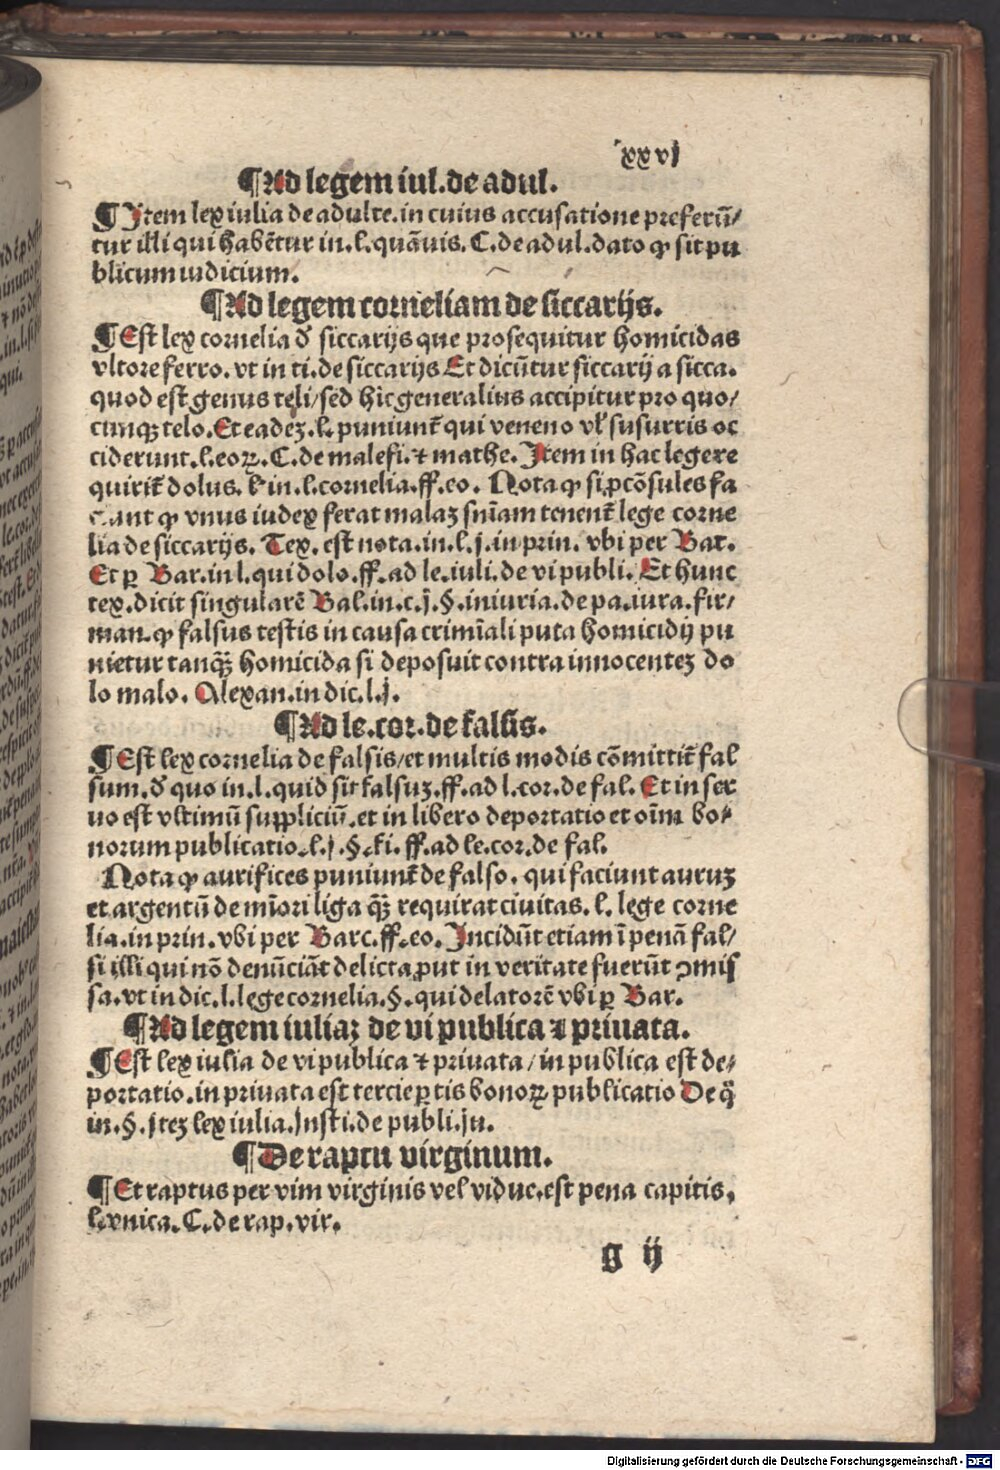 xxvj
¶Ad legem iul.de adul.
¶Jtem lex iulia de adulte.in cuius accusatione preferũ/
tur illi qui habẽtur in.l.quãuis.C.de adul.dato ꝙ sit pu
blicum iudicium.
¶Ad legem corneliam de siccarijs.
¶Est lex cornelia ď siccarijs que prosequitur homicidas
vltore ferro.vt in ti.de siccarijs Et dicũtur siccarij a sicca.
quod est genus teli/sed hic generalius accipitur pro quo/
cunqꝫ telo.Et eadeꝫ.l.puniunt̃ qui veneno vľ susurris oc
ciderunt.l.eoꝝ.C.de malefi.⁊ mathe.Jtem in hac lege re
quirit̃ dolus.l.in.l.cornelia.ff.eo. Nota ꝙ si p̱cõsules fa
ciant ꝙ vnus iudex ferat malaꝫ sniam tenent̃ lege corne
lia de siccarijs. Tex.est nota.in.l.j.in prin. vbi per Bar.
Et ꝑ Bar.in l.qui dolo.ff.ad le.iuli.de vi publi. Et hunc
tex.dicit singularẽ Bal.in.c.j.§.iniuria.de pa.iura.fir/
man.ꝙ falsus testis in causa crimĩali puta homicidij pu
nietur tanqꝫ̃ homicida si deposuit contra innocenteꝫ do
lo malo. Alexan.in dic.l.j.
¶Ad le.cor.de falsis.
¶Est lex cornelia de falsis/et multis modis cõmittit̃ fal
sum.ď quo in.l.quid sit falsuꝫ.ff.ad l.cor.de fal. Et in ser
uo est vltimũ suppliciũ.et in libero deportatio et oĩm bo/
norum publicatio.l.j.§.fi.ff.ad le.cor.de fal.
Nota ꝙ aurifices puniunt̃ de falso.qui faciunt auruꝫ
et argentũ de mĩori liga qꝫ̃ requirat ciuitas.l.lege corne
lia.in prin.vbi per Barc.ff.eo.Jncidũt etiam ĩ penã fal/
si illi qui nõ denũciãt delicta ꝓut in veritate fuerũt ↄmis
sa.vt in dic.l.lege cornelia.§.qui delatorẽ vbi ꝑ Bar.
¶Ad legem iuliaꝫ de vi publica ⁊ priuata.
¶Est lex iulia de vi publica ⁊ priuata/in publica est de/
portatio.in priuata est tercie ꝑtis bonoꝝ publicatio De q̃
in.§.Jteꝫ lex iulia.Jnsti.de publi.ju.
¶De raptu virginum.
¶Et raptus per vim virginis vel vidue.est pena capitis.
l.vnica.C.de rap.vir.
g ij
Digitalisierung gefördert durch die Deutsche Forschungsgemeinschaft - DFG